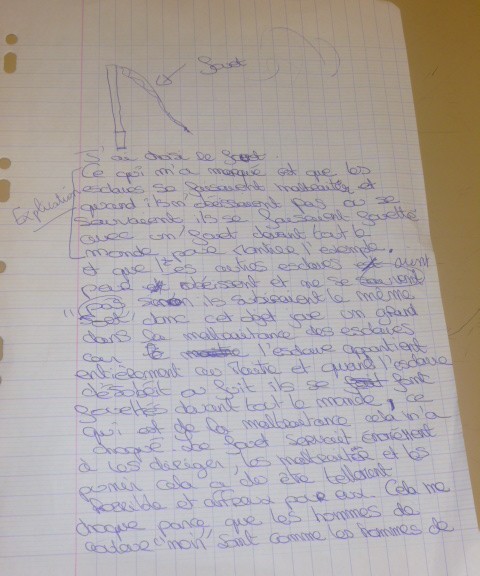 fouet
J'ai choisi le fouet.
Explication
Ce qui m'a marqué est que les
esclaves se faisaient maltraiter et
quand ils n'obéissaient pas ou se
sauvaient ils se faisaient fouetté
avec un fouet devant tout le
monde pour contrer l'exemple.
et que les autres esclaves aient
peur obéissent et ne se sauvent
"pas sinon ils subiraient le même
sort" donc cet objet joue un grand
dans la maltraitance des esclaves
car l'esclave appartient
entièrement au Maitre et quand l'esclave
désobéit ou fuit ils se font
fouettés devant tout le monde, ce
qui est de la maltraitance cela m'a
choqué. Le fouet servait énormément
à les diriger, les maltraités et les
punir cela a du être tellement
horrible et affreux pour eux. Cela me
choque parce que les hommes de
couleur "noir" sont comme les hommes de